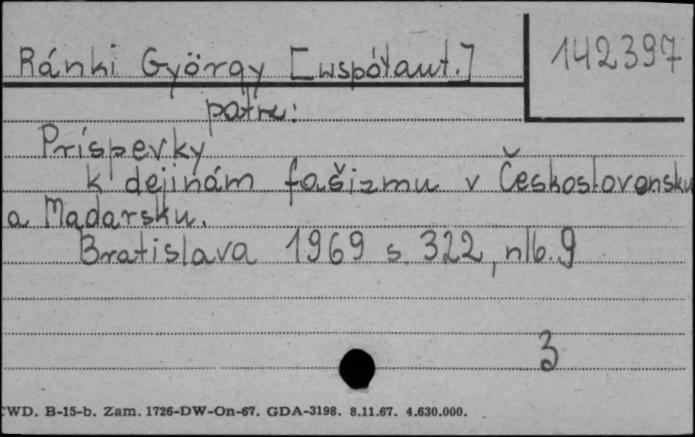 Ránki György [współaut.]
142397
patrz:
Príspevky
k dejinám fašizmu v Československu
a Maďarsku.
Bratislava 1969 s. 322, nlb. 9
3
CWD. B-15-b. Zam. 1726-DW-On-67. GDA-3198. 8.11.67. 4.630.000.